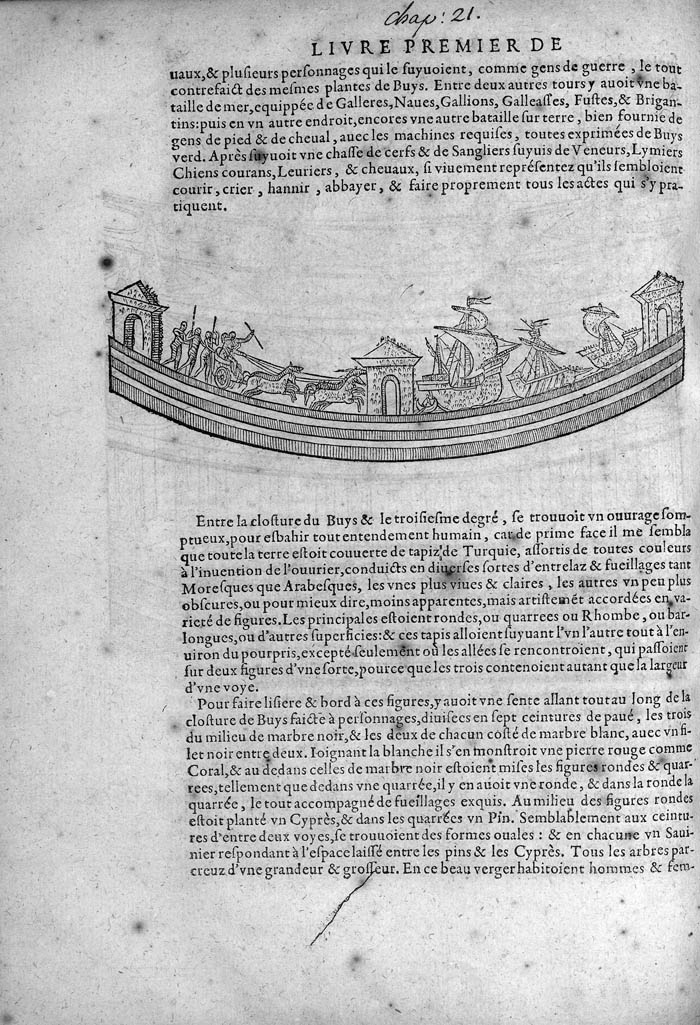 chap: 21.
LIVRE PREMIER DE
uaux,& pluſieurs perſonnages qui le ſuyuoient, comme gens de guerre, le tout
contrefaict des meſmes plantes de Buys. Entre deux autres tours y auoit vne ba-
taille de mer,equippée de Galleres,Naues,Gallions, Galleaſſes, Fuſtes,& Brigan-
tins:puis en vn autre endroit,encores vne autre bataille ſur terre, bien fournie de
gens de pied & de cheual, auec les machines requiſes, toutes exprimées de Buys
verd. Après ſuyuoit vne chaſſe de cerfs & de Sangliers ſuyuis de Veneurs,Lymiers
Chiens courans,Leuriers, & cheuaux, ſi viuement repréſentez qu'ils ſembloient
courir, crier, hannir, abbayer, & faire proprement tous les actes qui s'y pra-
tiquent.
Entre la cloſture du Buys & le troiſieſme degré, ſe trouuoit vn ouurage ſom-
ptueux,pour eſbahir tout entendement humain, car de prime face il me ſembla
que toute la terre eſtoit couuerte de tapiz de Turquie, aſſortis de toutes couleurs
à l'inuention de l'ouurier,conduicts en diuerſes ſortes d'entrelaz & fueillages tant
Moreſques que Arabeſques, les vnes plus viues & claires, les autres vn peu plus
obſcures,ou pour mieux dire,moins apparentes,mais artiſtemẽt accordées en va-
rieté de figures.Les principales eſtoient rondes,ou quarrees ou Rhombe, ou bar-
longues,ou d'autres ſuperficies:& ces tapis alloient ſuyuant l'vn l'autre tout à l'en-
uiron du pourpris,excepté ſeulement où les allées ſe rencontroient, qui paſſoient
ſur deux figures d'vne ſorte,pource que les trois contenoient autant que ſa largeur
d'vne voye.
Pour faire liſiere & bord à ces figures,y auoit vne ſente allant tout au long de la
cloſture de Buys faicte à perſonnages,diuiſees en ſept ceintures de paué, les trois
du milieu de marbre noir,& les deux de chacun coſté de marbre blanc, auec vn fi-
let noir entre deux. Ioignant la blanche il s'en monſtroit vne pierre rouge comme
Coral,& au dedans celles de marbre noir eſtoient miſes les figures rondes & quar-
rees,tellement que dedans vne quarrée,il y en auoit vne ronde, & dans la ronde la
quarrée, le tout accompagné de fueillages exquis. Au milieu des figures rondes
eſtoit planté vn Cyprès,& dans les quarrées vn Pin. Semblablement aux ceintu-
res d'entre deux voyes,ſe trouuoient des formes ouales : & en chacune vn Saui-
nier reſpondant à l'eſpace laiſſé entre les pins & les Cyprès. Tous les arbres par-
creuz d'vne grandeur & groſſeur. En ce beau verger habitoient hommes & fem-